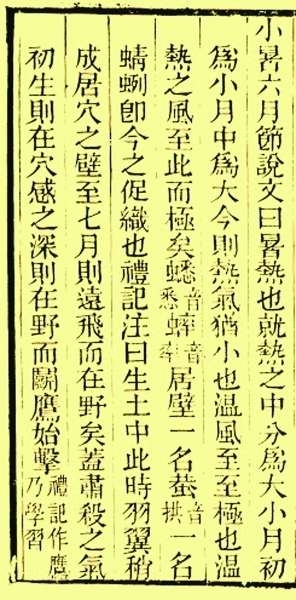 小暑六月節說文曰暑熱也就熱之中分爲大小月初
爲小月中爲大今則熱氣猶小也溫風至至極也溫
熱之風至此而極矣蟋音悉蟀音率居壁一名蛬音拱一名
蜻蛚卽今之促織也禮記注曰生土中此時羽翼稍
成居穴之壁至七月則遠飛而在野矣蓋肅殺之氣
初生則在穴感之深則在野而鬬鷹始擊禮記作鷹乃學習